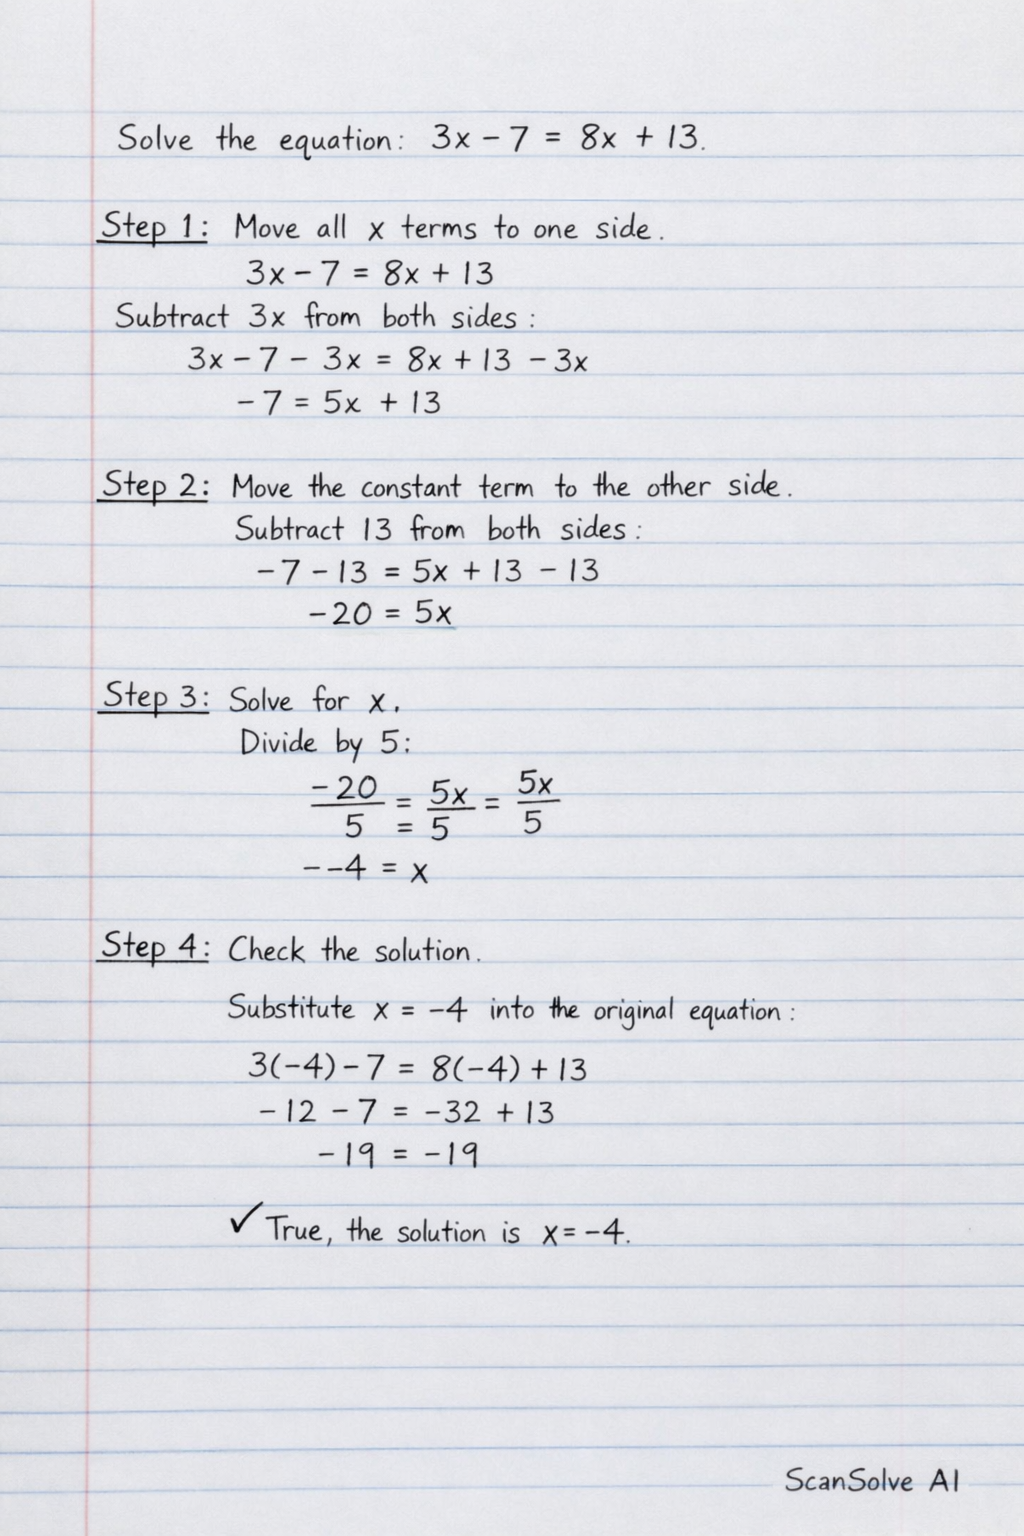 Solve the equation: 3x − 7 = 8x + 13.
Step 1: Move all x terms to one side.
3x − 7 = 8x + 13
Subtract 3x from both sides:
3x − 7 − 3x = 8x + 13 − 3x
−7 = 5x + 13
Step 2: Move the constant term to the other side.
Subtract 13 from both sides:
−7 − 13 = 5x + 13 − 13
−20 = 5x
Step 3: Solve for x.
Divide by 5:
−20 = 5x = 5x
5 = 5 5
−−4 = x
Step 4: Check the solution.
Substitute x = −4 into the original equation:
3(−4) − 7 = 8(−4) + 13
−12 − 7 = −32 + 13
−19 = −19
✓ True, the solution is x = −4.
ScanSolve AI